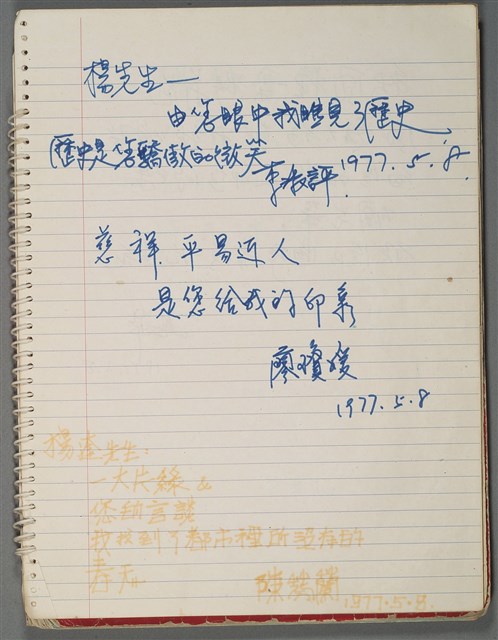 楊先生—
由您眼中我瞧見了歷史,
歷史是您驕傲的微笑
李 評 1977.5.8.
慈祥.平易近人
是您給我的印象
廖瓊媛
1977.5.8
楊逵先生:
一大片綠&
您的言談
我找到了都市裡所沒有的
春天
陳 蘭 1977.5.8.